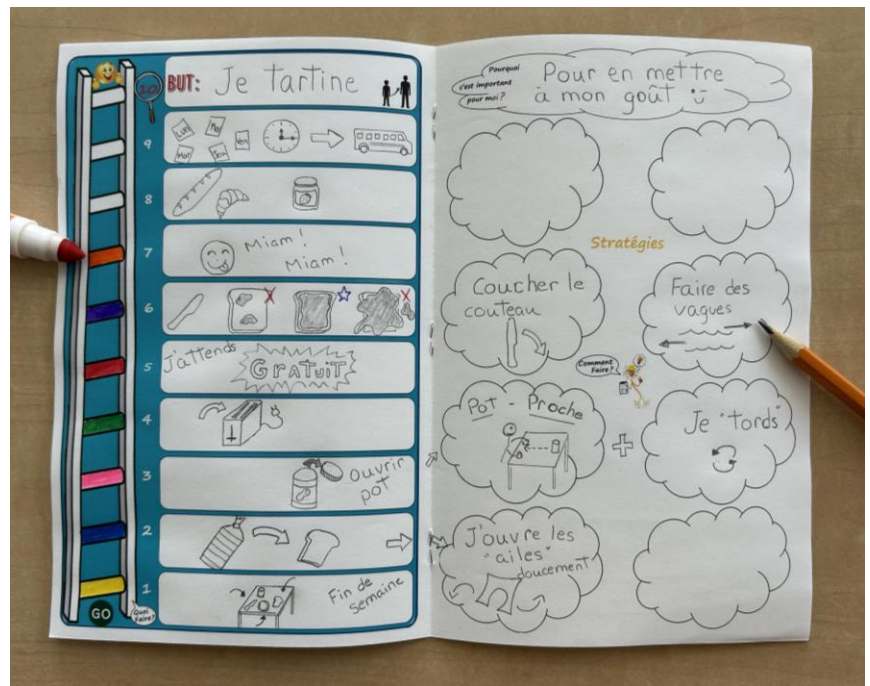 10
BUT: Je tartine
9
Lun
Mar
Jeu
Ven
8
7
Miam !
Miam !
6
5
J'attends
GRATUIT
4
3
Ouvrir
pot
2
1
Fin de
semaine
GO
Quoi
Faire?
Pourquoi
c'est important
pour moi ?
Pour en mettre
à mon goût
Stratégies
Coucher le
couteau
Faire des
vagues
Comment
Faire?
Pot - Proche
+
Je "tords"
J'ouvre les
"ailes"
doucement